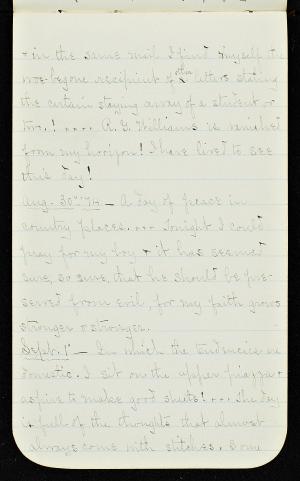 + in the same mail I find myself the
woe-begone recipient of other letters stating
the certain staying away of a student or
two! .... R. G. Williams is vanished
from my horizon! I have lived to see
this day!
Aug. 30th '74 - A day of peace in
country places.... Tonight I could
pray for my boy + it has seemed
sure, so sure, that he should be pre-
served from evil, for my faith grows
stronger & stronger.
Sept. 1st - In which the tendencies are
domestic. I sit on the upper piazza +
aspire to make good sheets!... The day
is full of the thoughts that almost
always come with stitches. Some